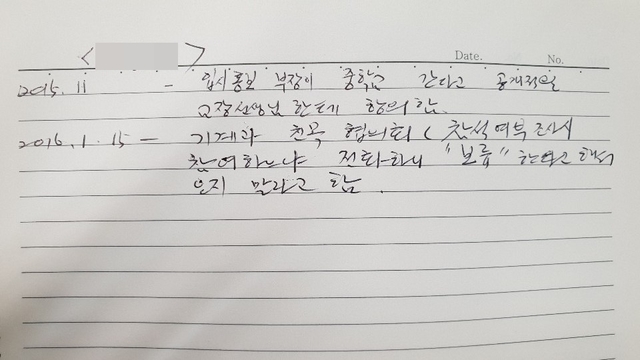 < >
Date. No.
2015. 11 - 입시홍보 부장이 중학교 간다고 공개적으로
교장선생님 한테 항의함.
2016. 1. 15 - 기계과 친목 협의회 ( 참석여부 조사시
참여하느냐 전화하니 "보류" 한다고 해서
오지 말라고 함.